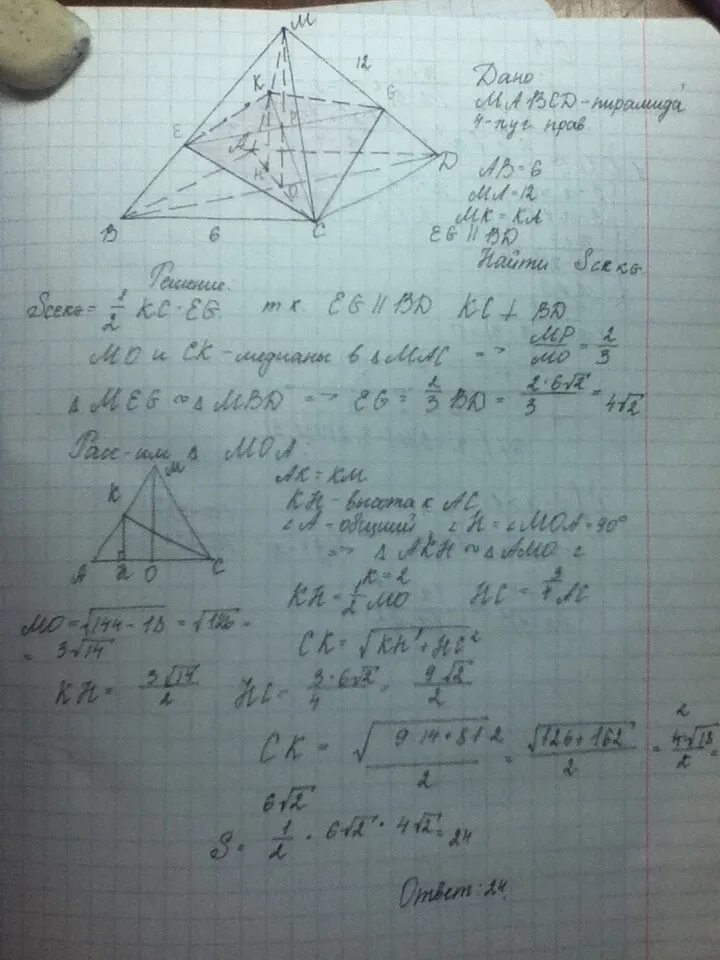 M
12
K
G
P
E
A
D
H
O
B
6
C
Дано
MABCD-пирамида
4-пуг. прав
AB=6
MA=12
MK=KA
EG || BD
Найти Sсекк
Решение.
Sсекк= 1/2 KC·EG т к EG || BD KC ⊥ BD
MO и CK-медианы в △ MAC => MP/MO = 2/3
△ MEG ∾ △ MBD => EG = 2/3 BD = 2·6√2/3 = 4√2
Расс-им △ MOA:
M
K
A
H
O
C
AK=KM
KH-высота к AC
∠A-общий ∠H=∠MOA=90°
=> △ AKH ∾ △ AMO
K=2
KH=1/2 MO HC= 3/4 AC
MO=√144-18 = √126 =
= 3√14
CK=√KH²+HC²
KH= 3√14/2 HC= 3·6√2/4 = 9√2/2
CK = √9·14+81·2/2 = √126+162/2 = 4√18/2 =
6√2
S= 1/2 · 6√2 · 4√2= 24
Ответ: 24.